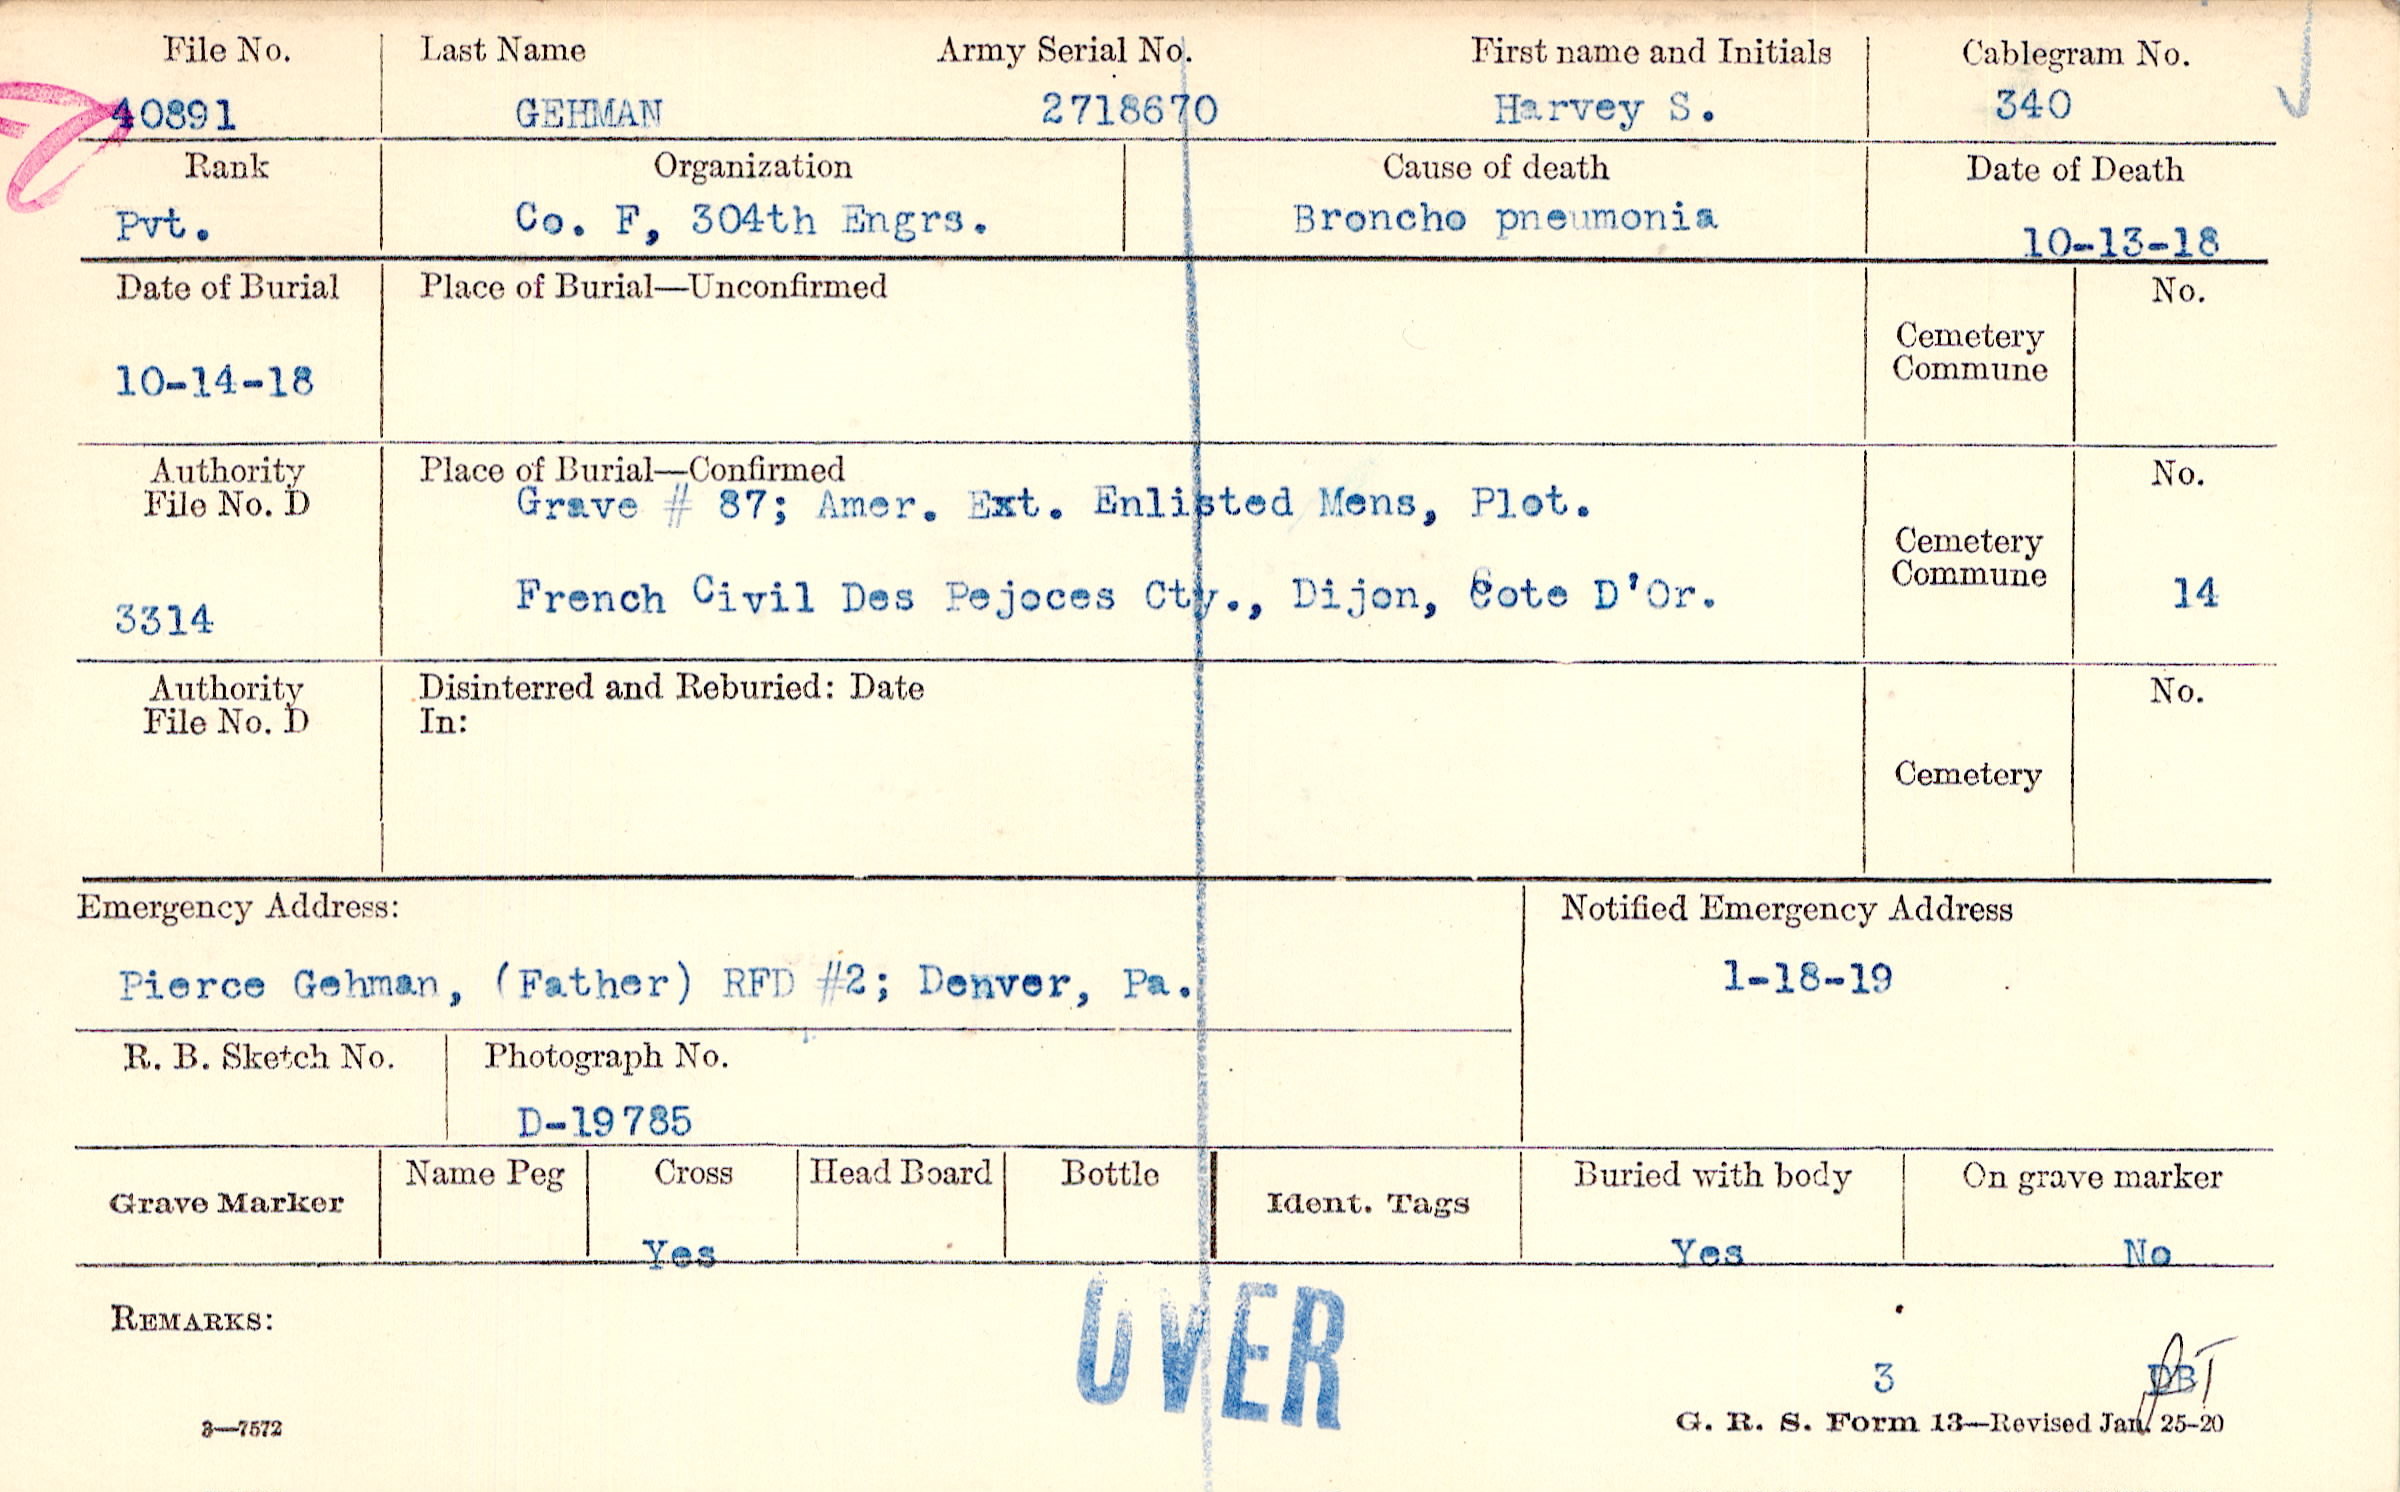 File No. Last Name Army Serial No. First name and Initials Cablegram No.
40891 GEHMAN 2718670 Harvey S. 340
Rank Organization Cause of death Date of Death
Pvt. Co. F, 304th Engrs. Broncho pneumonia 10-13-18
Date of Burial Place of Burial—Unconfirmed No.
Cemetery
Commune
10-14-18
Authority Place of Burial—Confirmed No.
File No. D Grave # 87; Amer. Ext. Enlisted Mens, Plot.
Cemetery
Commune
3314 French Civil Des Pejoces Cty., Dijon, Cote D'Or. 14
Authority Disinterred and Reburied: Date No.
File No. D In:
Cemetery
Emergency Address: Notified Emergency Address
Pierce Gehman, (Father) RFD #2; Denver, Pa. 1-18-19
R. B. Sketch No. Photograph No.
D-19785
Grave Marker Name Peg Cross Head Board Bottle Ident. Tags Buried with body On grave marker
Yes Yes No
OVER
REMARKS:
3
3—7572 G. R. S. Form 13—Revised Jan. 25-20